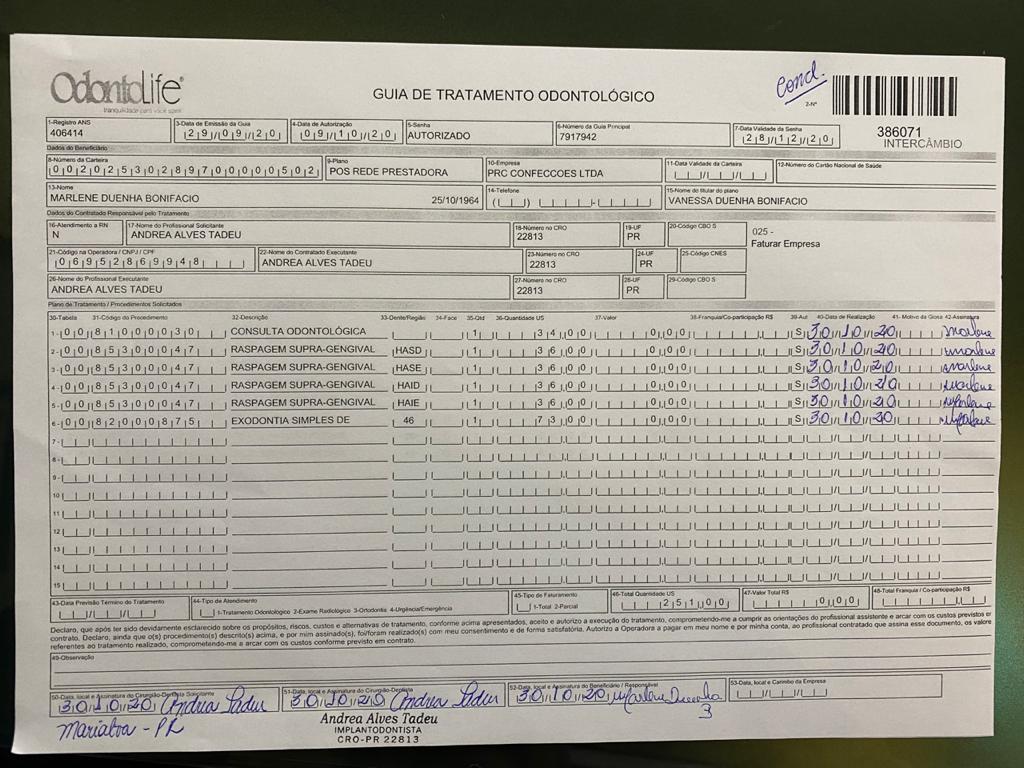 OdontoLife®
tranquilidade para você sorrir
GUIA DE TRATAMENTO ODONTOLÓGICO
Cond.
2-Nº
386071
INTERCÂMBIO
1-Registro ANS
406414
3-Data de Emissão da Guia
29/09/20
4-Data de Autorização
09/10/20
5-Senha
AUTORIZADO
6-Número da Guia Principal
7917942
7-Data Validade da Senha
28/12/20
Dados do Beneficiário
8-Número da Carteira
00202530289700000502
9-Plano
POS REDE PRESTADORA
10-Empresa
PRC CONFECCOES LTDA
11-Data Validade da Carteira
12-Número do Cartão Nacional de Saúde
13-Nome
MARLENE DUENHA BONIFACIO 25/10/1964
14-Telefone
15-Nome do titular do plano
VANESSA DUENHA BONIFACIO
Dados do Contratado Responsável pelo Tratamento
16-Atendimento a RN
N
17-Nome do Profissional Solicitante
ANDREA ALVES TADEU
18-Número no CRO
22813
19-UF
PR
20-Código CBO S
025 -
Faturar Empresa
21-Código na Operadora / CNPJ / CPF
06952869948
22-Nome do Contratado Executante
ANDREA ALVES TADEU
23-Número no CRO
22813
24-UF
PR
25-Código CNES
26-Nome do Profissional Executante
ANDREA ALVES TADEU
27-Número no CRO
22813
28-UF
PR
29-Código CBO S
Plano de Tratamento / Procedimentos Solicitados
30-Tabela 31-Código do Procedimento 32-Descrição 33-Dente/Região 34-Face 35-Qtd 36-Quantidade US 37-Valor 38-Franquia/Co-participação R$ 39-Aut 40-Data de Realização 41- Motivo da Glosa 42-Assinatura
1- 00 81000030 CONSULTA ODONTOLÓGICA 1 34,00 0,00 S 30/10/20 Marlene
2- 00 85300047 RASPAGEM SUPRA-GENGIVAL HASD 1 36,00 0,00 S 30/10/20 Marlene
3- 00 85300047 RASPAGEM SUPRA-GENGIVAL HASE 1 36,00 0,00 S 30/10/20 Marlene
4- 00 85300047 RASPAGEM SUPRA-GENGIVAL HAID 1 36,00 0,00 S 30/10/20 Marlene
5- 00 85300047 RASPAGEM SUPRA-GENGIVAL HAIE 1 36,00 0,00 S 30/10/20 Marlene
6- 00 82000875 EXODONTIA SIMPLES DE 46 1 73,00 0,00 S 30/10/20 Marlene
7-
8-
9-
10
11
12
13
14
15
43-Data Previsão Término do Tratamento
44-Tipo de Atendimento
1-Tratamento Odontológico 2-Exame Radiológico 3-Ortodontia 4-Urgência/Emergência
45-Tipo de Faturamento
1-Total 2-Parcial
46-Total Quantidade US
251,00
47-Valor Total R$
0,00
48-Total Franquia / Co-participação R$
Declaro, que após ter sido devidamente esclarecido sobre os propósitos, riscos, custos e alternativas de tratamento, conforme acima apresentados, aceito e autorizo a execução do tratamento, comprometendo-me a cumprir as orientações do profissional assistente e arcar com os custos previstos em
contrato. Declaro, ainda que o(s) procedimento(s) descrito(s) acima, e por mim assinado(s), foi/foram realizado(s) com meu consentimento e de forma satisfatória. Autorizo a Operadora a pagar em meu nome e por minha conta, ao profissional contratado que assina esse documento, os valores
referentes ao tratamento realizado, comprometendo-me a arcar com os custos conforme previsto em contrato.
49-Observação
50-Data, local e Assinatura do Cirurgião-Dentista Solicitante
30/10/20 Andrea Tadeu
51-Data, local e Assinatura do Cirurgião-Dentista
30/10/20 Andrea Tadeu
52-Data, local e Assinatura do Beneficiário / Responsável
30/10/20 Marlene Duenha
53-Data, local e Carimbo da Empresa
Marialva - PR
Andrea Alves Tadeu
IMPLANTODONTISTA
CRO-PR 22813
3